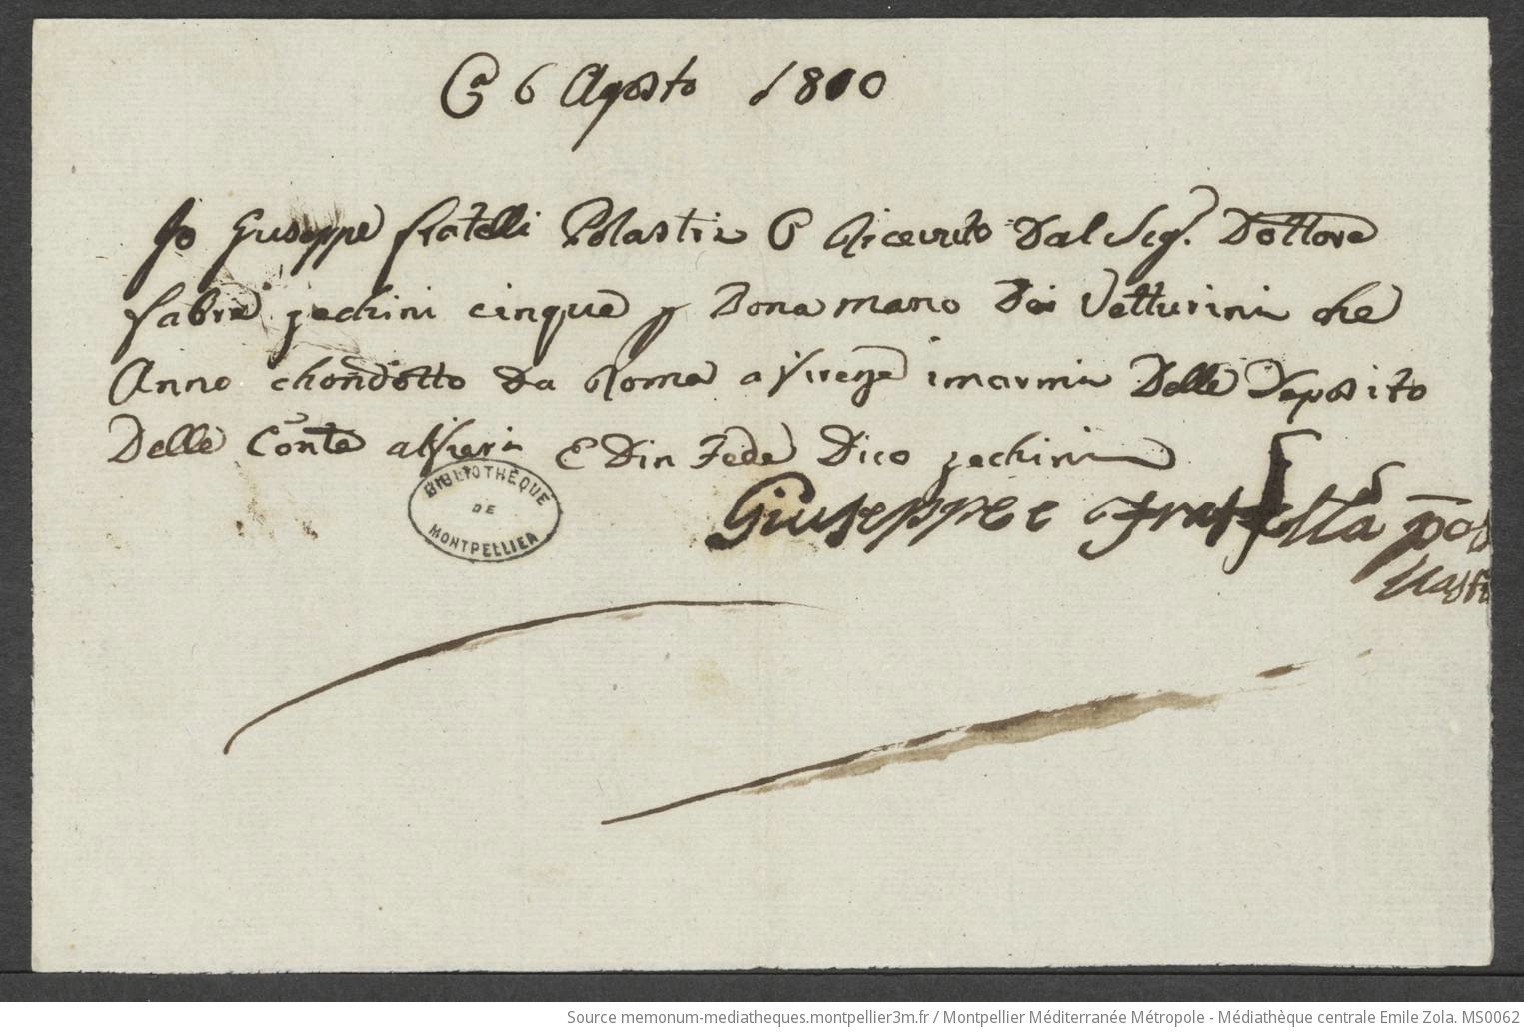 6 Agosto 1810
Io Guseppe fratelli Polastri O Riceuuto Dal Sig.r Dottore
fabre zechini cinque p Bona mano Dei Vetturini che
Anno chondotto da Roma a firenze i marmi Delle Deposito
Delle Conte alfieri E Din Fede Dico zechini
BIBLIOTHÈQUE
DE
MONTPELLIER
Giuseppe e Fratella pol
Source memonum-mediatheques.montpellier3m.fr / Montpellier Méditerranée Métropole - Médiathèque centrale Emile Zola. MS0062